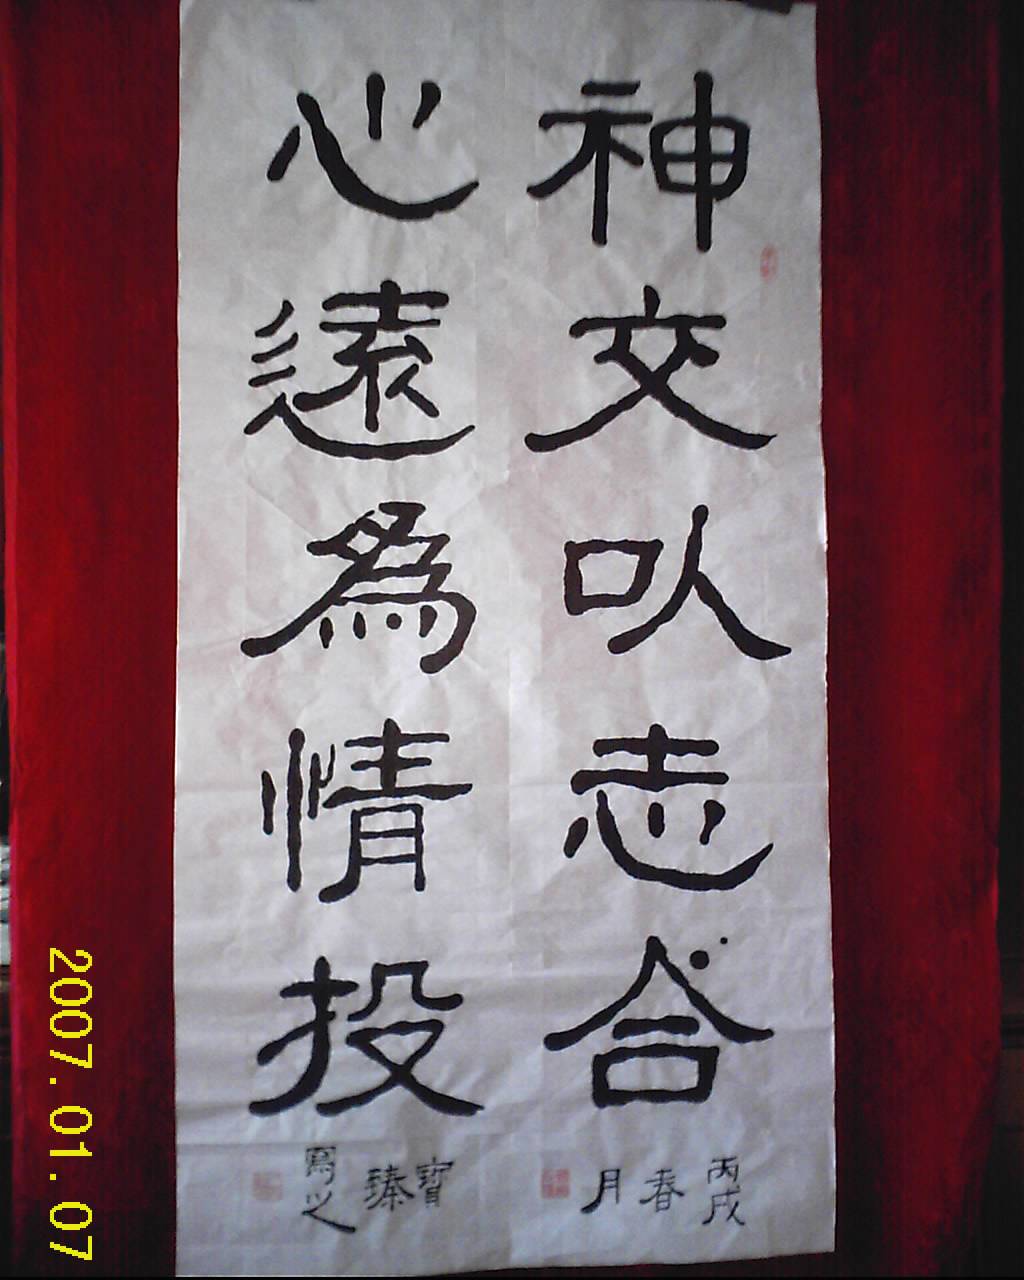 神交以志合
丙戌春月
心遠為情投
寶臻寫之
2007.01.07